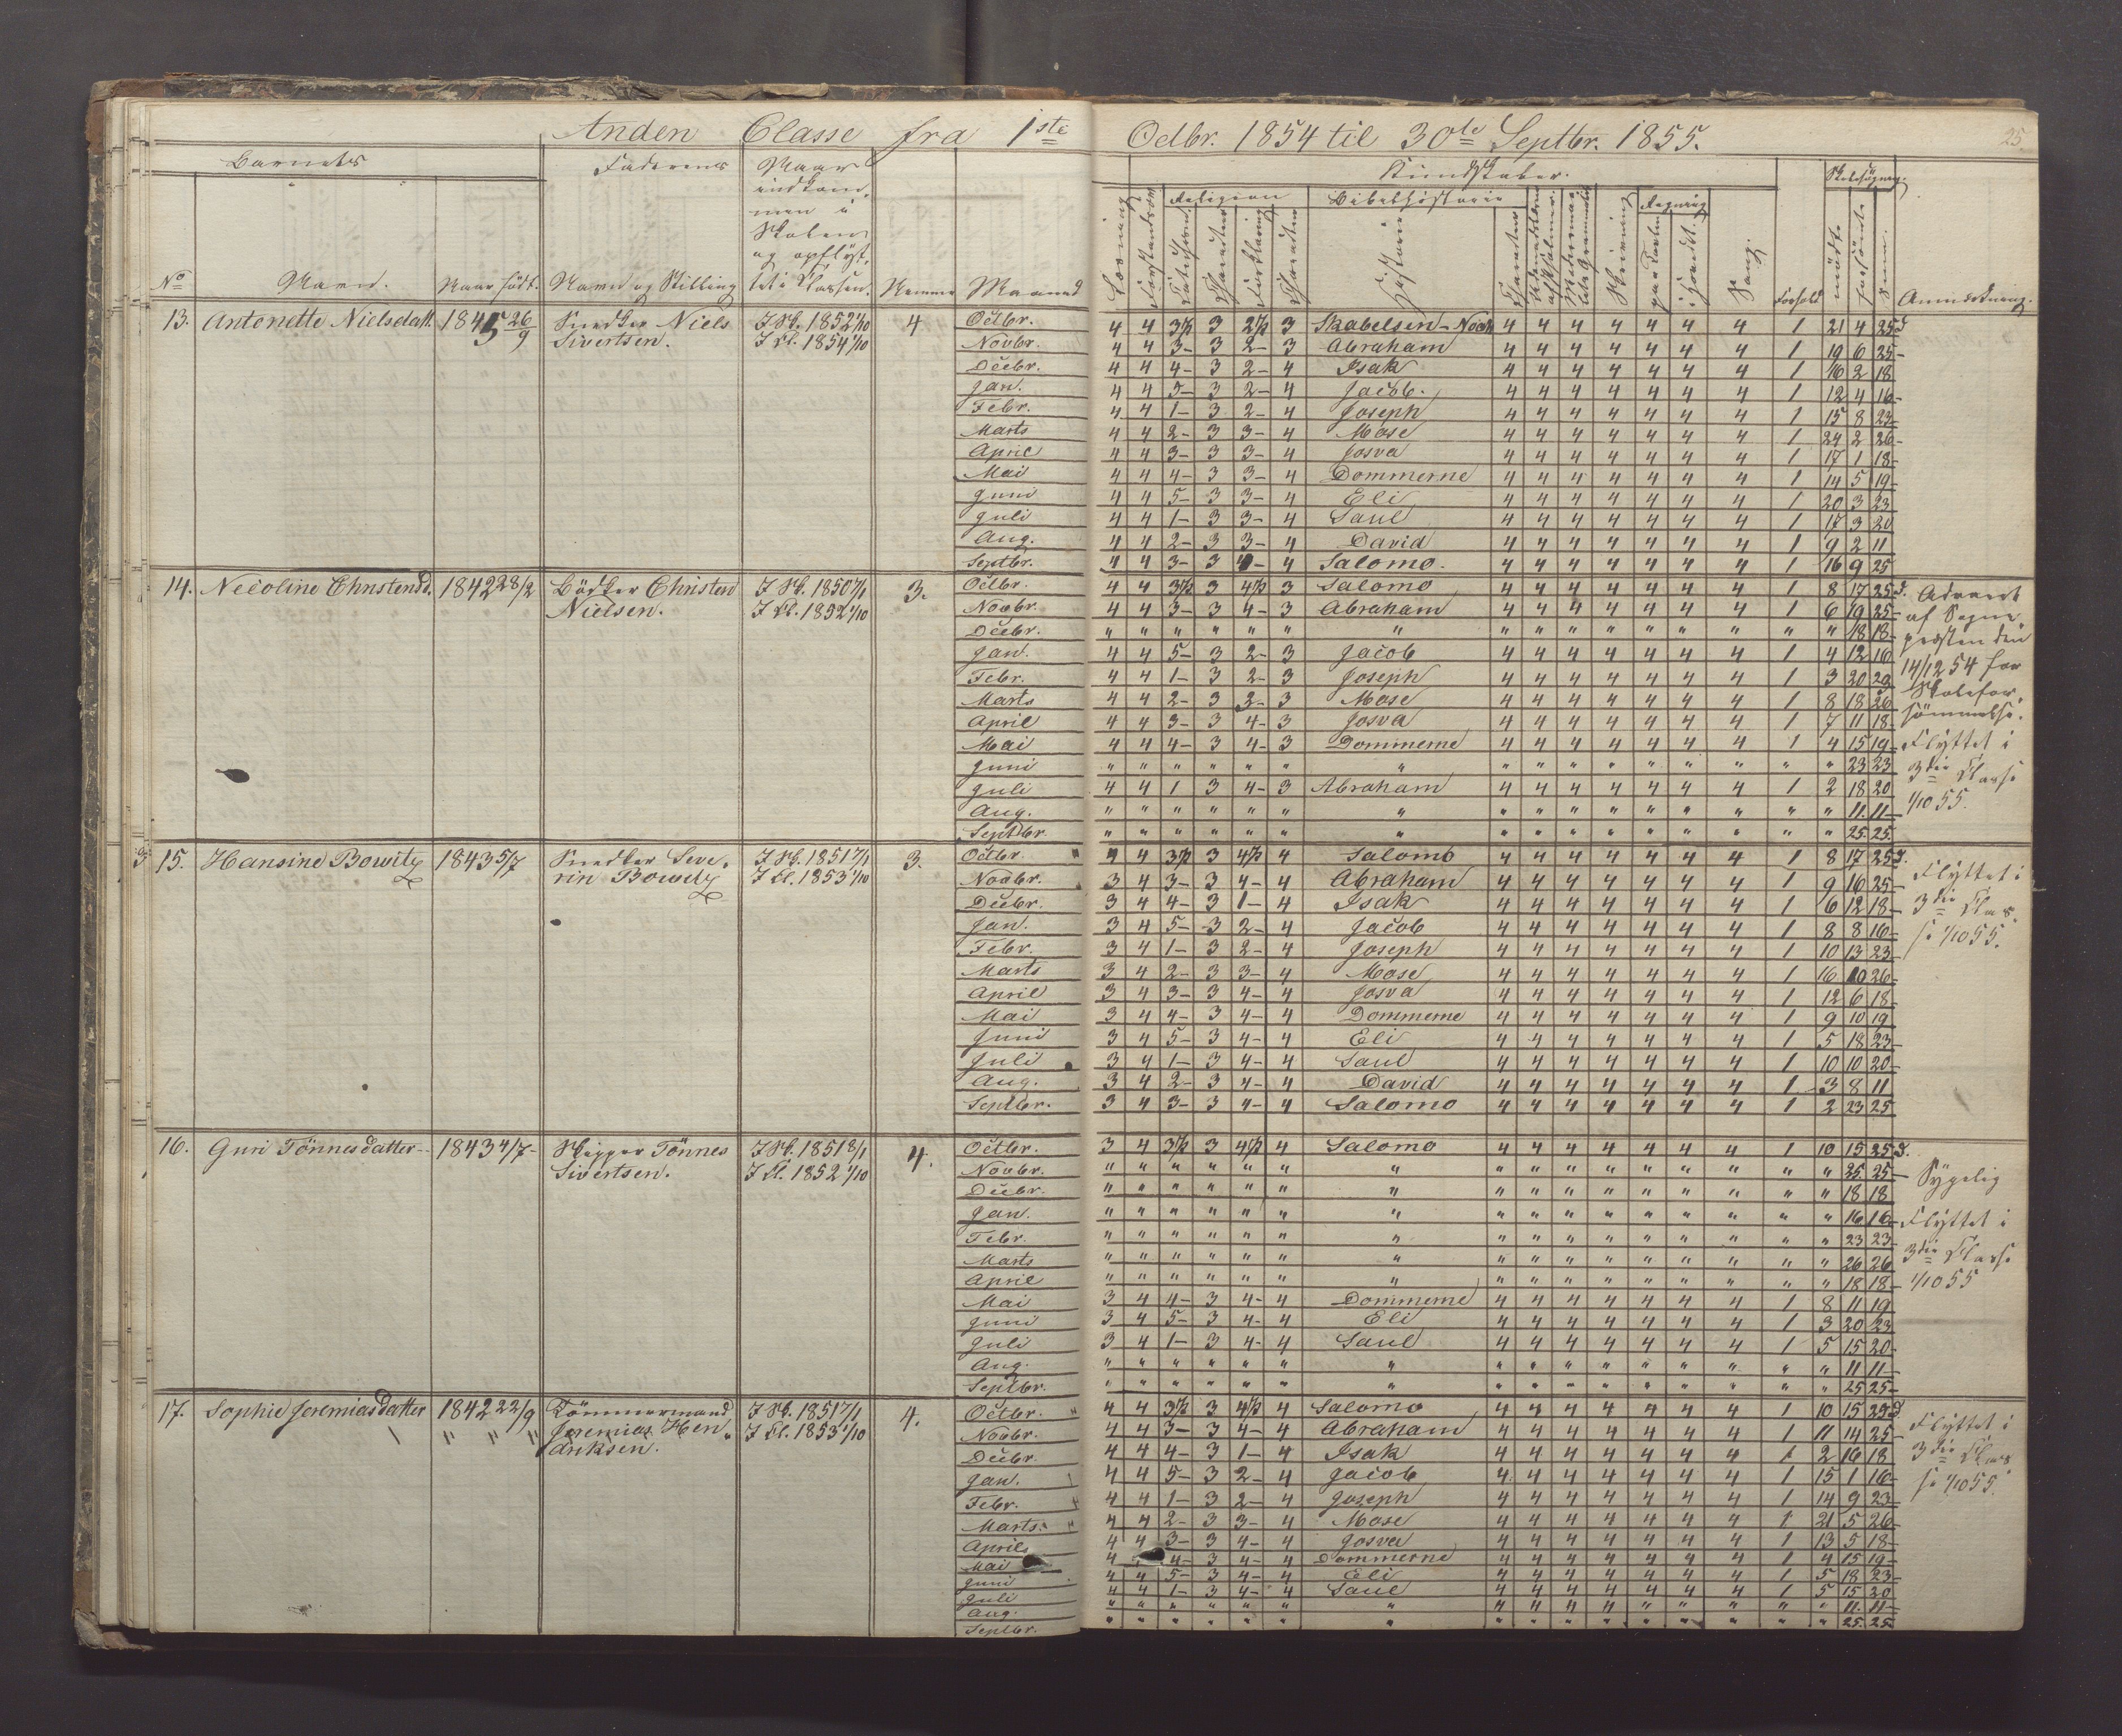 Anden Classe fra 1ste Octbr. 1854 til 30te Septbr. 1855.
25.
Barnets Faderens Naar indkommen i Skolen og opflyttet i Classen.
No Navn. Naar født. Navn og Stilling Nummer Maaned
Kundskaber. Skolesøgning.
Religion Bibelhistorie Regning
Læsning Forstandsøv. Charakter Forklaring Charakter Historie Charakter Skrivning paa Tavlen i Hovedet Sang. Forhold mødte forsømte Sum. Anmærkning.
13. Antonette Nielsdatt. 1845 26/9 Snedker Niels Sivertsen. I Sk. 1852 1/10 I Cl. 1854 1/10 4
Octbr. 4 4 3 1/2 3 2 1/2 3 Skabelsen-Noah 4 4 4 4 4 4 4 1 21 4 25 d
Novbr. 4 4 3- 3 2- 3 Abraham 4 4 4 4 4 4 4 1 19 6 25-
Decbr. 4 4 4- 3 2- 4 Isak 4 4 4 4 4 4 4 1 16 2 18
Jan. 4 4 5- 3 2- 4 Jacob. 4 4 4 4 4 4 4 1 12 4 16-
Febr. 4 4 1- 3 2- 4 Joseph 4 4 4 4 4 4 4 1 15 8 23
Marts 4 4 2- 3 3- 4 Mose 4 4 4 4 4 4 4 1 24 2 26-
April 4 4 3- 3 3- 4 Josva 4 4 4 4 4 4 4 1 17 1 18-
Mai 4 4 4- 3 3- 4 Dommerne 4 4 4 4 4 4 4 1 14 5 19-
Juni 4 4 5- 3 3- 4 Eli 4 4 4 4 4 4 4 1 20 3 23
Juli 4 4 1- 3 3- 4 Saul 4 4 4 4 4 4 4 1 17 3 20
Aug. 4 4 2- 3 3- 4 David 4 4 4 4 4 4 4 1 9 2 11
Septbr. 4 4 3- 3 4- 4 Salomo. 4 4 4 4 4 4 4 1 16 9 25
14. Necoline Christensd. 1842 28/2 Bødker Christen Nielsen. I Sk. 1850 7/1 I Cl. 1852 1/10 3.
Octbr. 4 4 3 1/2 3 4 1/2 3 Salomo 4 4 4 4 4 4 4 1 8 17 25 d.
Novbr. 4 4 3- 3 4- 3 Abraham 4 4 4 4 4 4 4 1 6 19 25-
Decbr. " " " " " " " " " " " " " " " " 18 18-
Jan. 4 4 5- 3 2- 3 Jacob 4 4 4 4 4 4 4 1 4 12 16
Febr. 4 4 1- 3 2- 3 Joseph 4 4 4 4 4 4 4 1 3 20 23
Marts 4 4 2- 3 2- 3 Mose 4 4 4 4 4 4 4 1 8 18 26
April 4 4 3- 3 4- 3 Josva 4 4 4 4 4 4 4 1 7 11 18-
Mai 4 4 4- 3 4- 3 Dommerne 4 4 4 4 4 4 4 1 4 15 19-
Juni " " " " " " " " " " " " " " " " 23 23
Juli 4 4 1 3 4- 3 Abraham 4 4 4 4 4 4 4 1 2 18 20
Aug. " " " " " " " " " " " " " " " " 11. 11-
Septbr. " " " " " " " " " " " " " " " " 25. 25.
Advaret af Sogneprĕsten den 14/12 54 for Skoleforsømmelse.
Flyttet i 3die Classe 1/10 55.
15. Hansine Bowitz 1843 5/7 Snedker Severin Bowitz I Sk. 1851 7/1 I Cl. 1853 1/10 3.
Octbr. 4 4 3 1/2 3 4 1/2 4 Salomo 4 4 4 4 4 4 4 1 8 17 25 d.
Novbr. 3 4 3- 3 4- 4 Abraham 4 4 4 4 4 4 4 1 9 16 25-
Decbr. 3 4 4- 3 1- 4 Isak 4 4 4 4 4 4 4 1 6 12 18-
Jan. 3 4 5- 3 2- 4 Jacob 4 4 4 4 4 4 4 1 8 8 16-
Febr. 3 4 1- 3 2- 4 Joseph 4 4 4 4 4 4 4 1 10 13 23-
Marts 3 4 2- 3 3- 4 Mose 4 4 4 4 4 4 4 1 16 10 26-
April 3 4 3- 3 4- 4 Josva 4 4 4 4 4 4 4 1 12 6 18-
Mai 3 4 4- 3 4- 4 Dommerne 4 4 4 4 4 4 4 1 9 10 19
Juni 3 4 5- 3 4- 4 Eli 4 4 4 4 4 4 4 1 5 18 23-
Juli 3 4 1- 3 4- 4 Saul 4 4 4 4 4 4 4 1 10 10 20-
Aug. 3 4 2- 3 4- 4 David 4 4 4 4 4 4 4 1 3 8 11
Septbr. 3 4 3- 3 4- 4 Salomo 4 4 4 4 4 4 4 1 2 23 25
Flyttet i 3die Classe 1/10 55.
16. Guri Tönnesdatter 1843 4/7 Skipper Tönnes Sivertsen. I Sk. 1851 8/1 I Cl. 1852 1/10 4.
Octbr. 3 4 3 1/2 3 4 1/2 4 Salomo 4 4 4 4 4 4 4 1 10 15 25 d.
Novbr. " " " " " " " " " " " " " " " " 25. 25-
Decbr. " " " " " " " " " " " " " " " " 18 18
Jan. " " " " " " " " " " " " " " " " 16 16-
Febr. " " " " " " " " " " " " " " " " 23 23-
Marts " " " " " " " " " " " " " " " " 26 26
April " " " " " " " " " " " " " " " " 18 18-
Mai 3 4 4- 3 4- 4 Dommerne 4 4 4 4 4 4 4 1 8 11 19
Juni 3 4 5- 3 4- 4 Eli 4 4 4 4 4 4 4 1 3 20 23
Juli 3 4 1- 3 4- 4 Saul 4 4 4 4 4 4 4 1 5 15 20-
Aug. " " " " " " " " " " " " " " " " 11 11-
Septbr. " " " " " " " " " " " " " " " " 25 25-
Sygelig
Flyttet i 3die Classe 1/10 55
17. Sophie Jeremiasdatter 1842 22/9 Tømmermand Jeremias Hendriksen. I Sk. 1851 7/1 I Cl. 1853 1/10 4.
Octbr. 4 4 3 1/2 3 4 1/2 4 Salomo 4 4 4 4 4 4 4 1 10 15 25 d
Novbr. 4 4 3- 3 4- 4 Abraham 4 4 4 4 4 4 4 1 11 14 25-
Decbr. 4 4 4- 3 1- 4 Isak 4 4 4 4 4 4 4 1 2 16 18
Jan. 4 4 5- 3 2- 4 Jacob 4 4 4 4 4 4 4 1 15 1 16-
Febr. 4 4 1- 3 2- 4 Joseph 4 4 4 4 4 4 4 1 14 9 23-
Marts. 4 4 2- 3 3- 4 Mose 4 4 4 4 4 4 4 1 21 5 26-
April 4 4 3- 3 4- 4 Josva 4 4 4 4 4 4 4 1 13 5 18-
Mai 4 4- 3 4- 4 Dommerne 4 4 4 4 4 4 4 1 4 15 19-
Juni 4 4 5- 3 4- 4 Eli 4 4 4 4 4 4 4 1 5 18 23-
Juli 4 4 1- 3 4- 4 Saul 4 4 4 4 4 4 4 1 5 15 20
Aug. " " " " " " " 4 4 4 4 " " " " " 11. 11-
Septbr. " " " " " " " " " " " " " " " " 25. 25
Flyttet i 3die Classe 1/10 55.